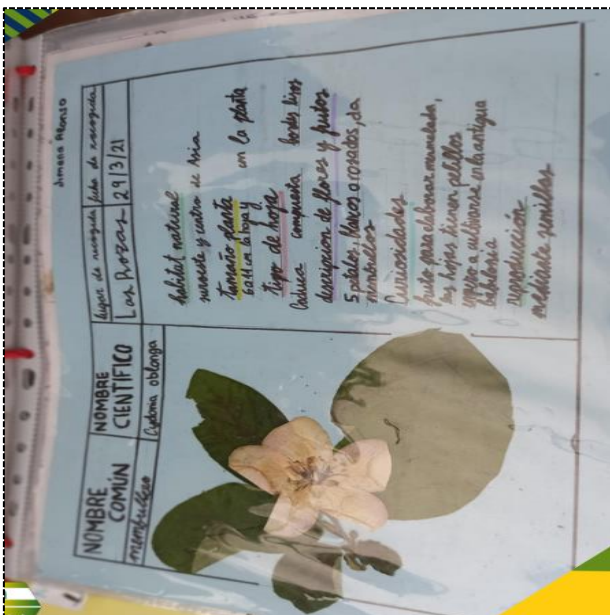 Jimena Alonso
NOMBRE COMÚN
NOMBRE CIENTÍFICO
lugar de recogida
fecha de recogida
membrillero
Cydonia oblonga
Las Rozas
29/3/21
habitat natural
suroeste y centro de Asia
tamaño planta
en la hoja y en la planta
tipo de hoja
Caduca compuesta bordes lisos
descripcion de flores y frutos
5 pétalos, blancos o rosados, da
membrillos
Curiosidades
fruto para elaborar mermelada,
las hojas tienen pelillos
empezo a cultivarse en la antigua
babilonia
reproducción
mediante semillas